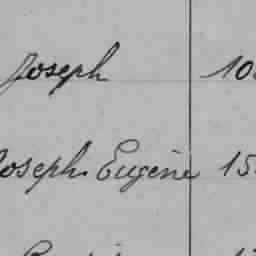 Joseph 10
Joseph Eugène 15